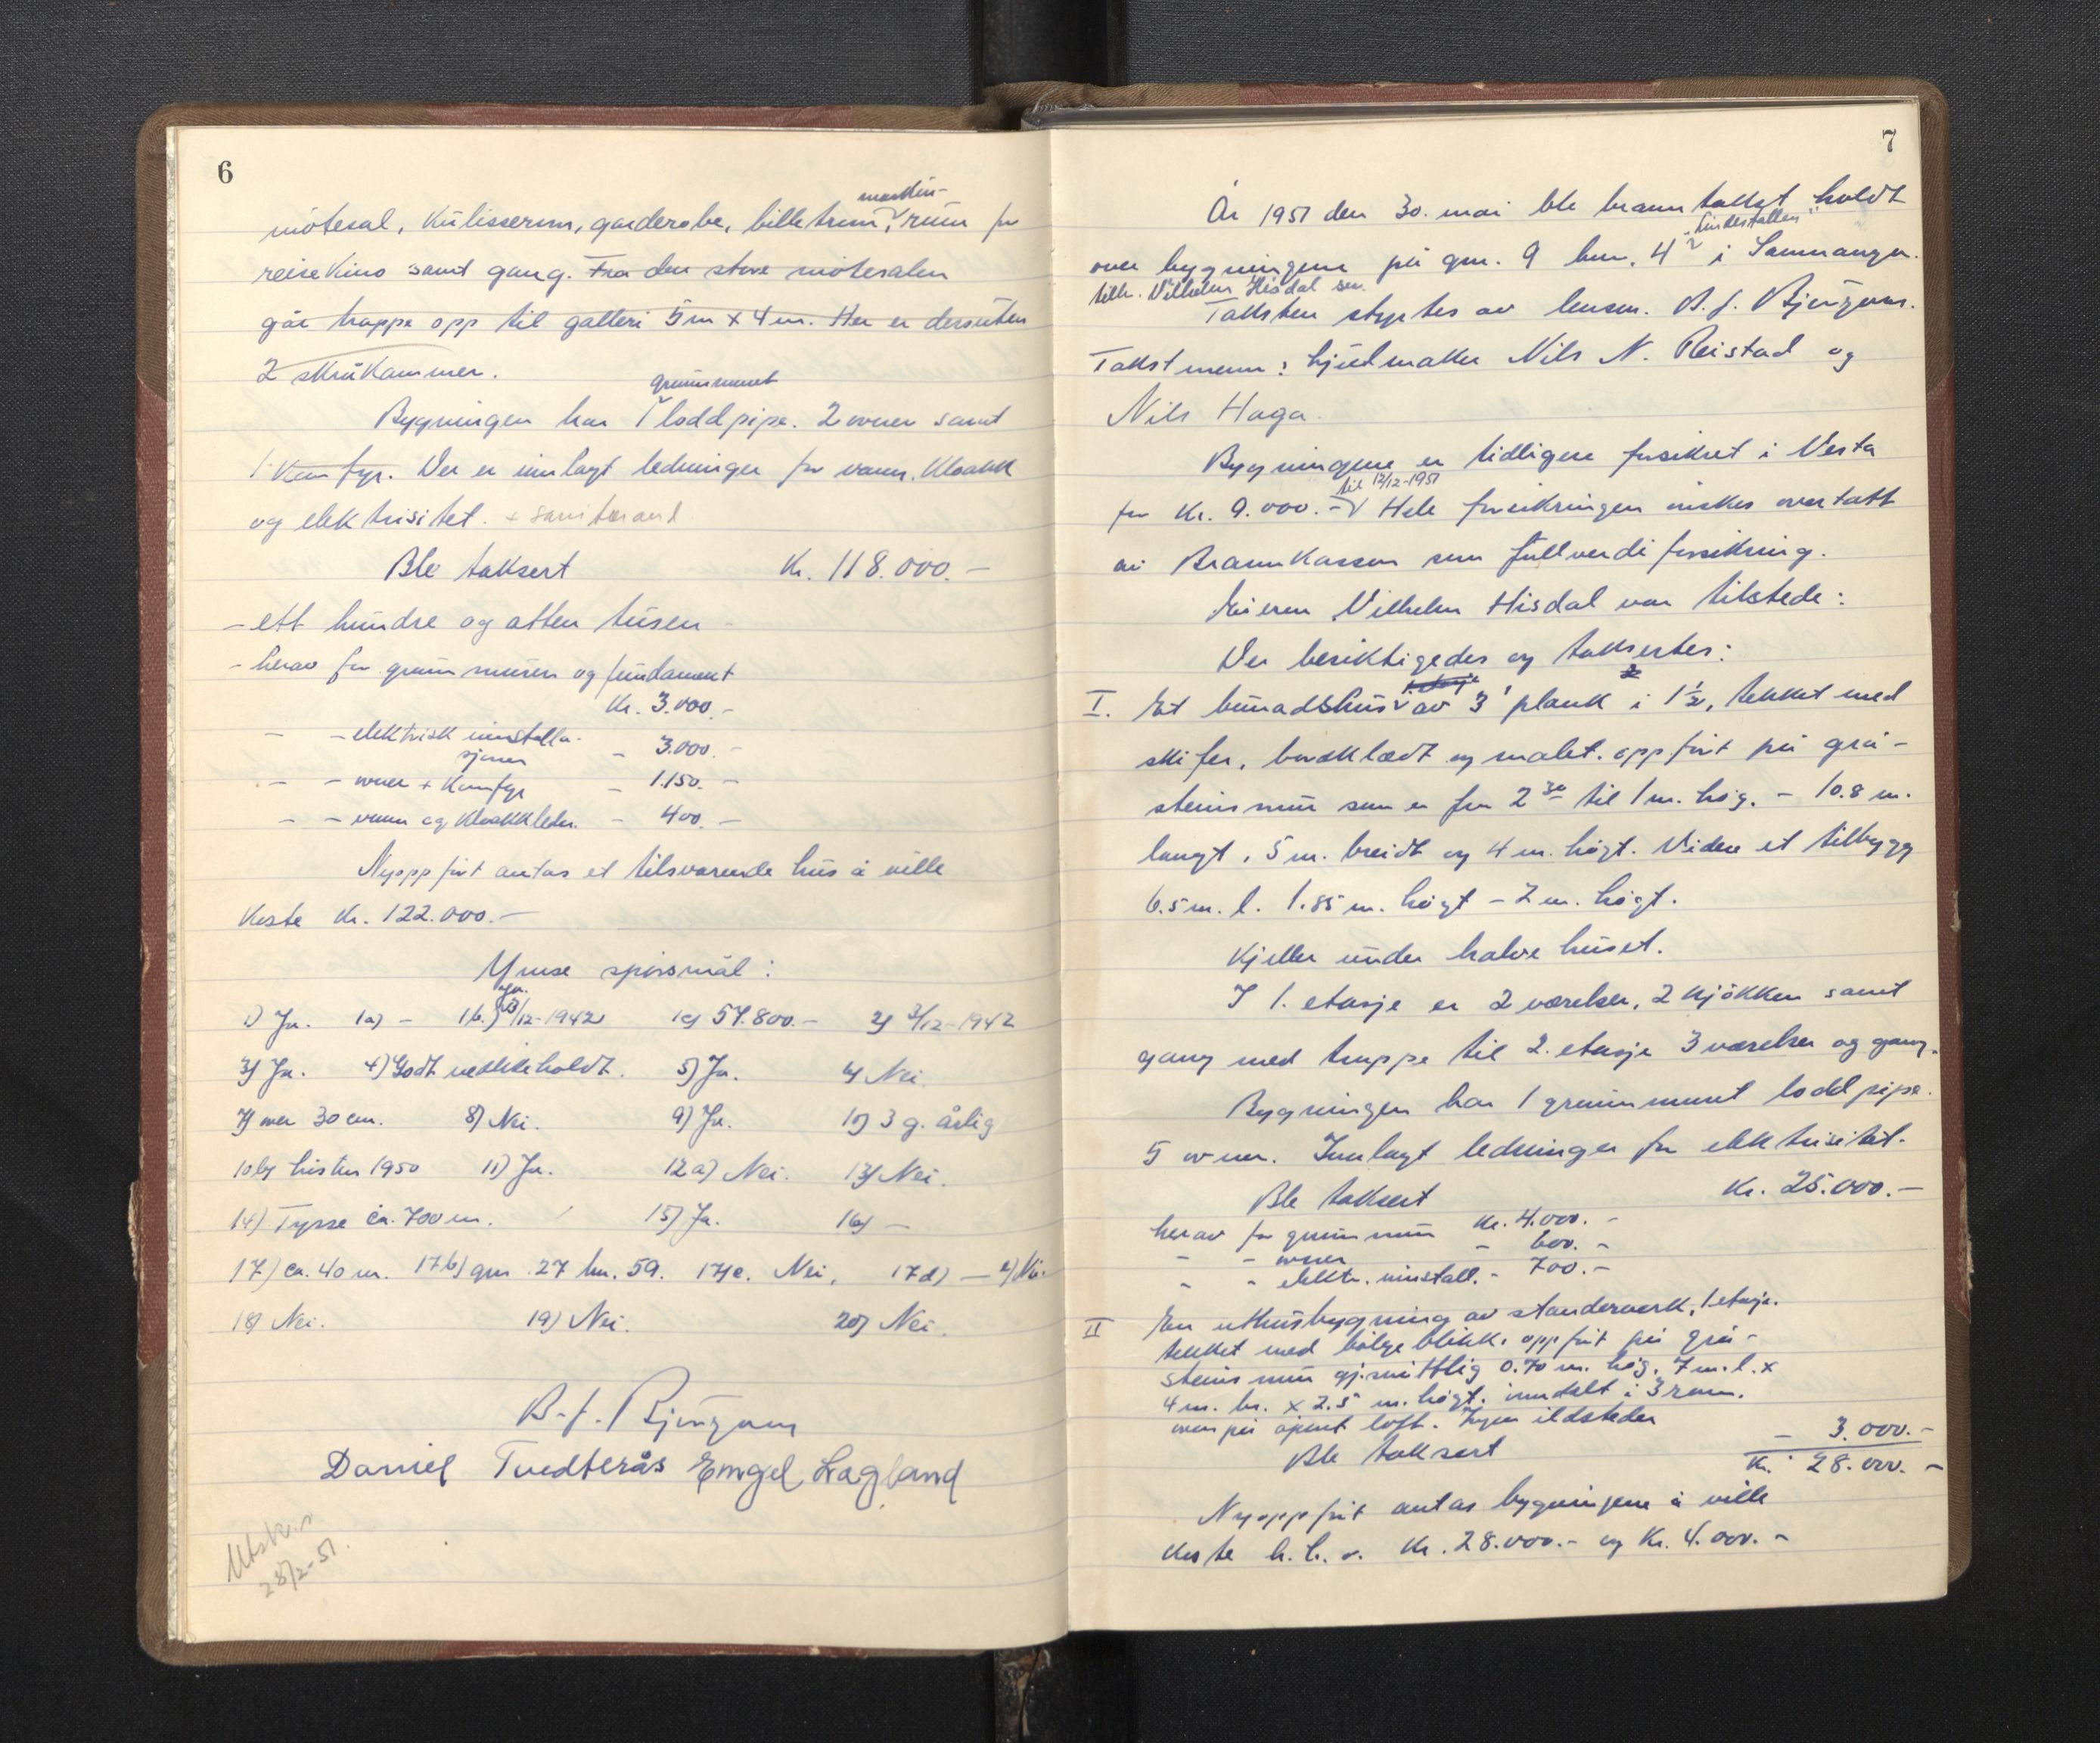 6
maskin-
mötesal, Kulisserom, garderobe, billettrum, rum for
reisekino samt gang. Fra den store mötesalen
går trappe opp til galleri 5 m x 4 m. Her er dersuten
2 skråkammer.
grunnmuret
Bygningen har 1 loddpipe. 2 ovner samt
1 Komfyr. Der er innlagt ledninger for vann. Kloakk
og elektrisitet. + sanitæranl.
Ble taksert Kr. 118.000.-
- ett hundre og atten tusen -
- herav for grunnmuren og fundament
Kr. 3.000.-
- - elektrisk innstalla-
sjoner - 3.000.-
- - ovner + Komfyr - 1.150.-
- - vann og Kloakkledn. - 400.-
Nyoppfört antas et tilsvarende hus å ville
Koste Kr. 122.000.-
Ymse spörsmål:
Ja.
1) Ja. 1a) - 1b.) 3/12-1942 1c) 54.800.- 2) 3/12-1942
3) Ja. 4) Godt vedlikeholdt. 5) Ja. 6) Nei.
7) over 30 cm. 8) Nei. 9) Ja. 10) 3 g. årlig
10b) hösten 1950 11) Ja. 12 a) Nei. 13) Nei.
14) Tysse ca. 700 m. 15) Ja. 16) -
17) ca. 40 m. 17b) gnr. 27 bn. 59. 17c. Nei, 17d) - e) Nei.
18) Nei. 19) Nei. 20) Nei.
B. J. Bjørgum
Daniel Tvedterås Engel Lagland
Utskr.
28/2-51.
7
År 1951 den 30. mai ble branntakst holdt
"Lindestallen"
over bygningene på gnr. 9 bnr. 4 i Samnanger.
tilh. Vilhelm Hisdal sen.
Taksten styrtes av lensm. B. J. Bjørgum.
Takstmenn: hjulmaker Nils N. Reistad og
Nils Haga.
Bygningene er tidligere forsikret i Vesta
til 12/12-1951
for Kr. 9.000.- Hele forsikringen önskes overtatt
av Brannkassen som fullverdiforsikring.
Eieren Vilhelm Hisdal var tilstede:
Der besiktigedes og taksertes:
I. Et bunadshus av 3" plank i 1 1/2, tekket med
skifer, bordklædt og malet. oppfört på grå-
steinsmur som er fra 2 30 til 1 m. høg. - 10.8 m.
langt, 5 m. breidt og 4 m. högt. Videre et tilbygg
6.5 m. l. 1.85 m. högt - 2 m. högt.
Kjeller under halve huset.
I 1. etasje er 2 værelser, 2 kjökken samt
gang med trappe til 2. etasje 3 værelser og gang.
Bygningen har 1 grunnmuret loddpipe.
5 ovner. Innlagt ledninger for elektrisitet.
Ble taksert Kr. 25.000.-
herav for grunnmur Kr. 4.000.-
- - ovner - 600.-
- - elektr. innstall. - 700.-
II En uthusbygning av standerverk, 1 etasje.
tekket med bölgeblikk. oppfört på grå-
steinsmur gj.snittlig 0.70 m. høg. 7 m. l. x
4 m. br. x 2.5 m. högt. inndelt i 3 rom.
ovenpå åpent loft. Ingen ildsteder
Ble taksert - 3.000.-
Kr. 28.000.-
Nyoppfört antas bygningene å ville
koste h. h. v. Kr. 28.000.- og Kr. 4.000.-